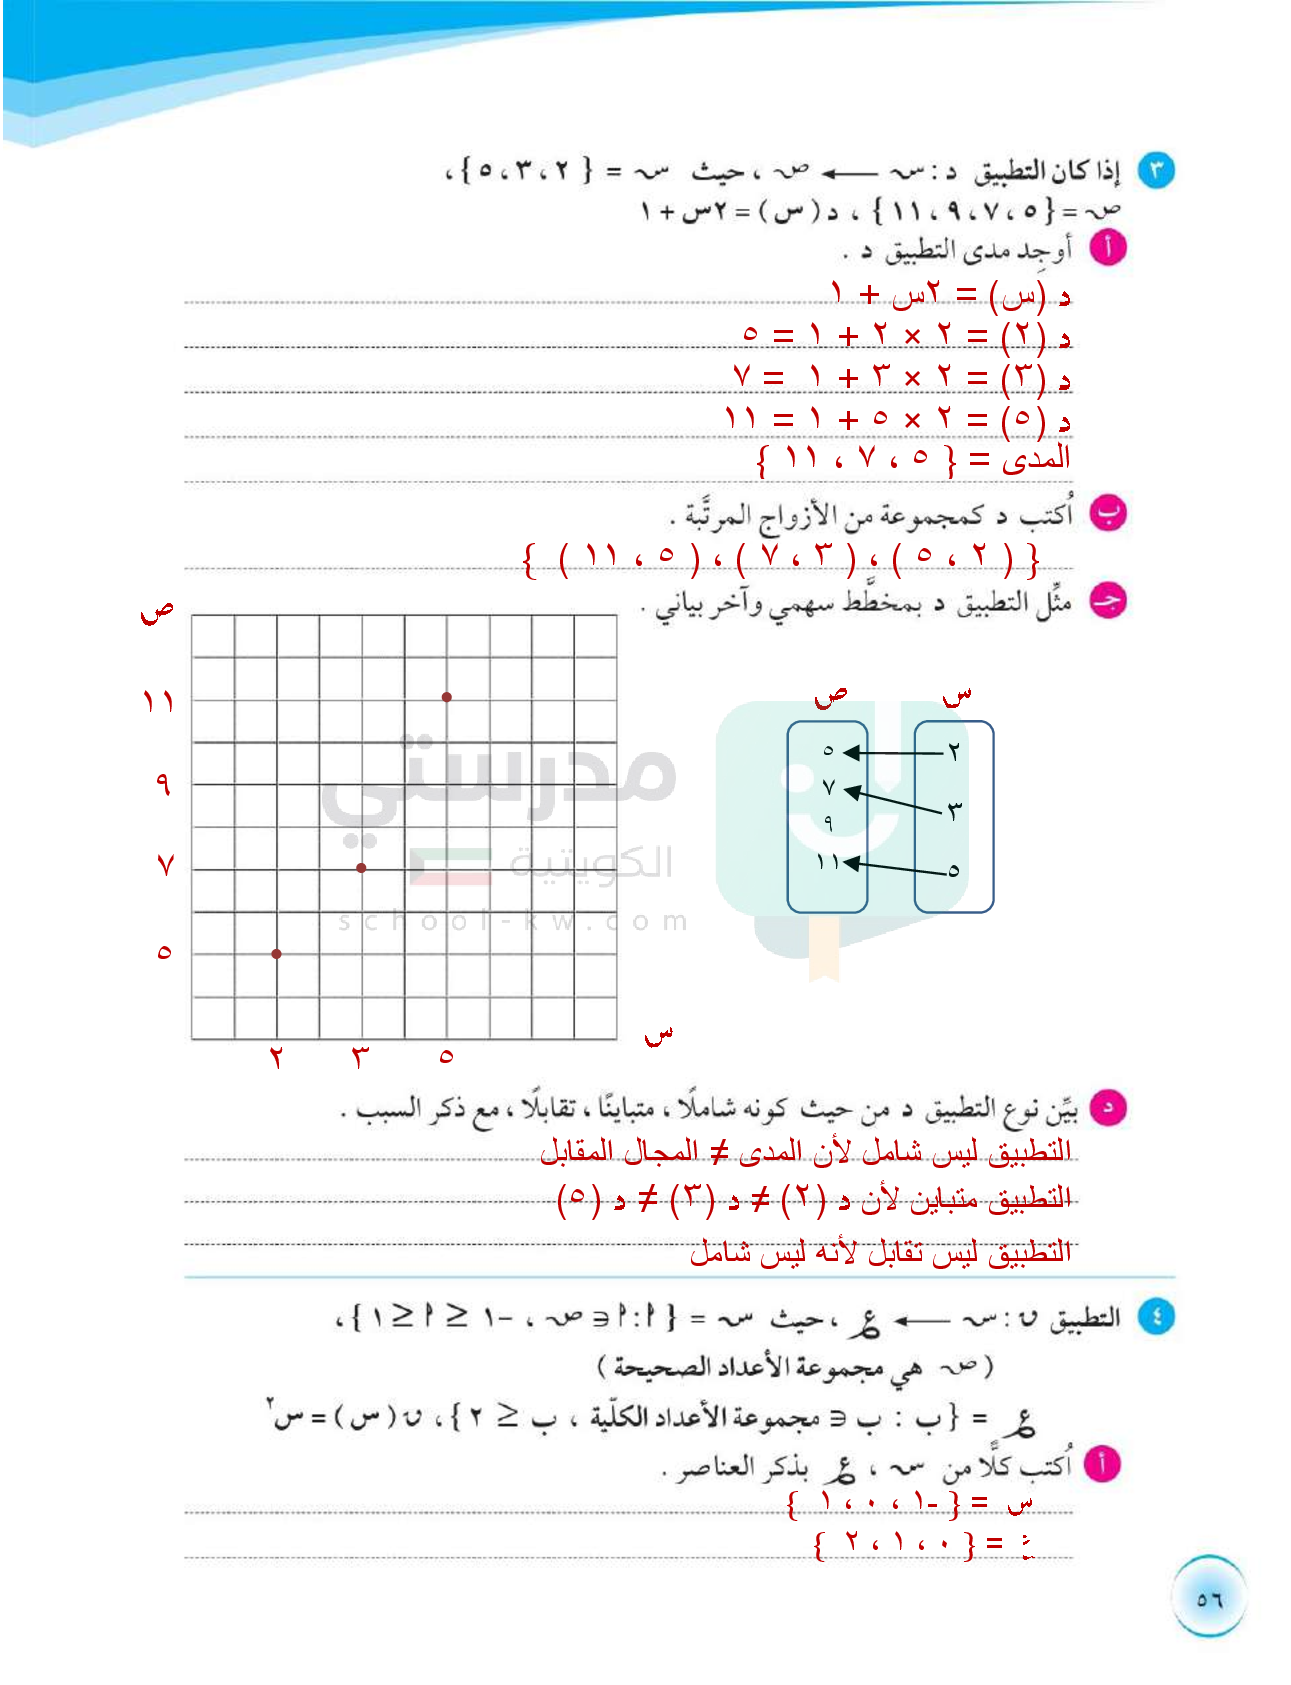 ٣ إذا كان التطبيق د : سـ ← صـ ، حيث سـ = { ٢ ، ٣ ، ٥ } ،
صـ = { ٥ ، ٧ ، ٩ ، ١١ } ، د ( س ) = ٢س + ١
أ أوجِد مدى التطبيق د .
د (س) = ٢س + ١
د (٢) = ٢ × ٢ + ١ = ٥
د (٣) = ٢ × ٣ + ١ = ٧
د (٥) = ٢ × ٥ + ١ = ١١
المدى = { ٥ ، ٧ ، ١١ }
ب اُكتب د كمجموعة من الأزواج المرتَّبة .
{ ( ٢ ، ٥ ) ، ( ٣ ، ٧ ) ، ( ٥ ، ١١ ) }
جـ مثِّل التطبيق د بمخطَّط سهمي وآخر بياني .
ص
١١
٩
٧
٥
٢ ٣ ٥
س
س ص
٢ ٥
٣ ٧
٩
٥ ١١
مدرستي
الكويتية
school-kw.com
د بيِّن نوع التطبيق د من حيث كونه شاملًا ، متباينًا ، تقابلًا ، مع ذكر السبب .
التطبيق ليس شامل لأن المدى ≠ المجال المقابل
التطبيق متباين لأن د (٢) ≠ د (٣) ≠ د (٥)
التطبيق ليس تقابل لأنه ليس شامل
٤ التطبيق ن : سـ ← ع ، حيث سـ = { أ : أ ∈ صـ ، –١ ≤ أ ≤ ١ } ،
( صـ هي مجموعة الأعداد الصحيحة )
ع = { ب : ب ∈ مجموعة الأعداد الكلّية ، ب ≤ ٢ } ، ن ( س ) = س٢
أ اُكتب كلًّا من سـ ، ع بذكر العناصر .
س = { -١ ، ٠ ، ١ }
ع = { ٠ ، ١ ، ٢ }
٥٦